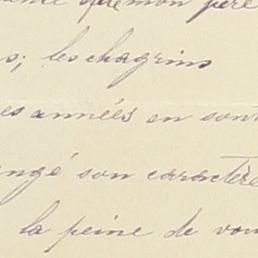 que mon père
s; les chagrins
es années en sont
ngé son caractère
la peine de vou